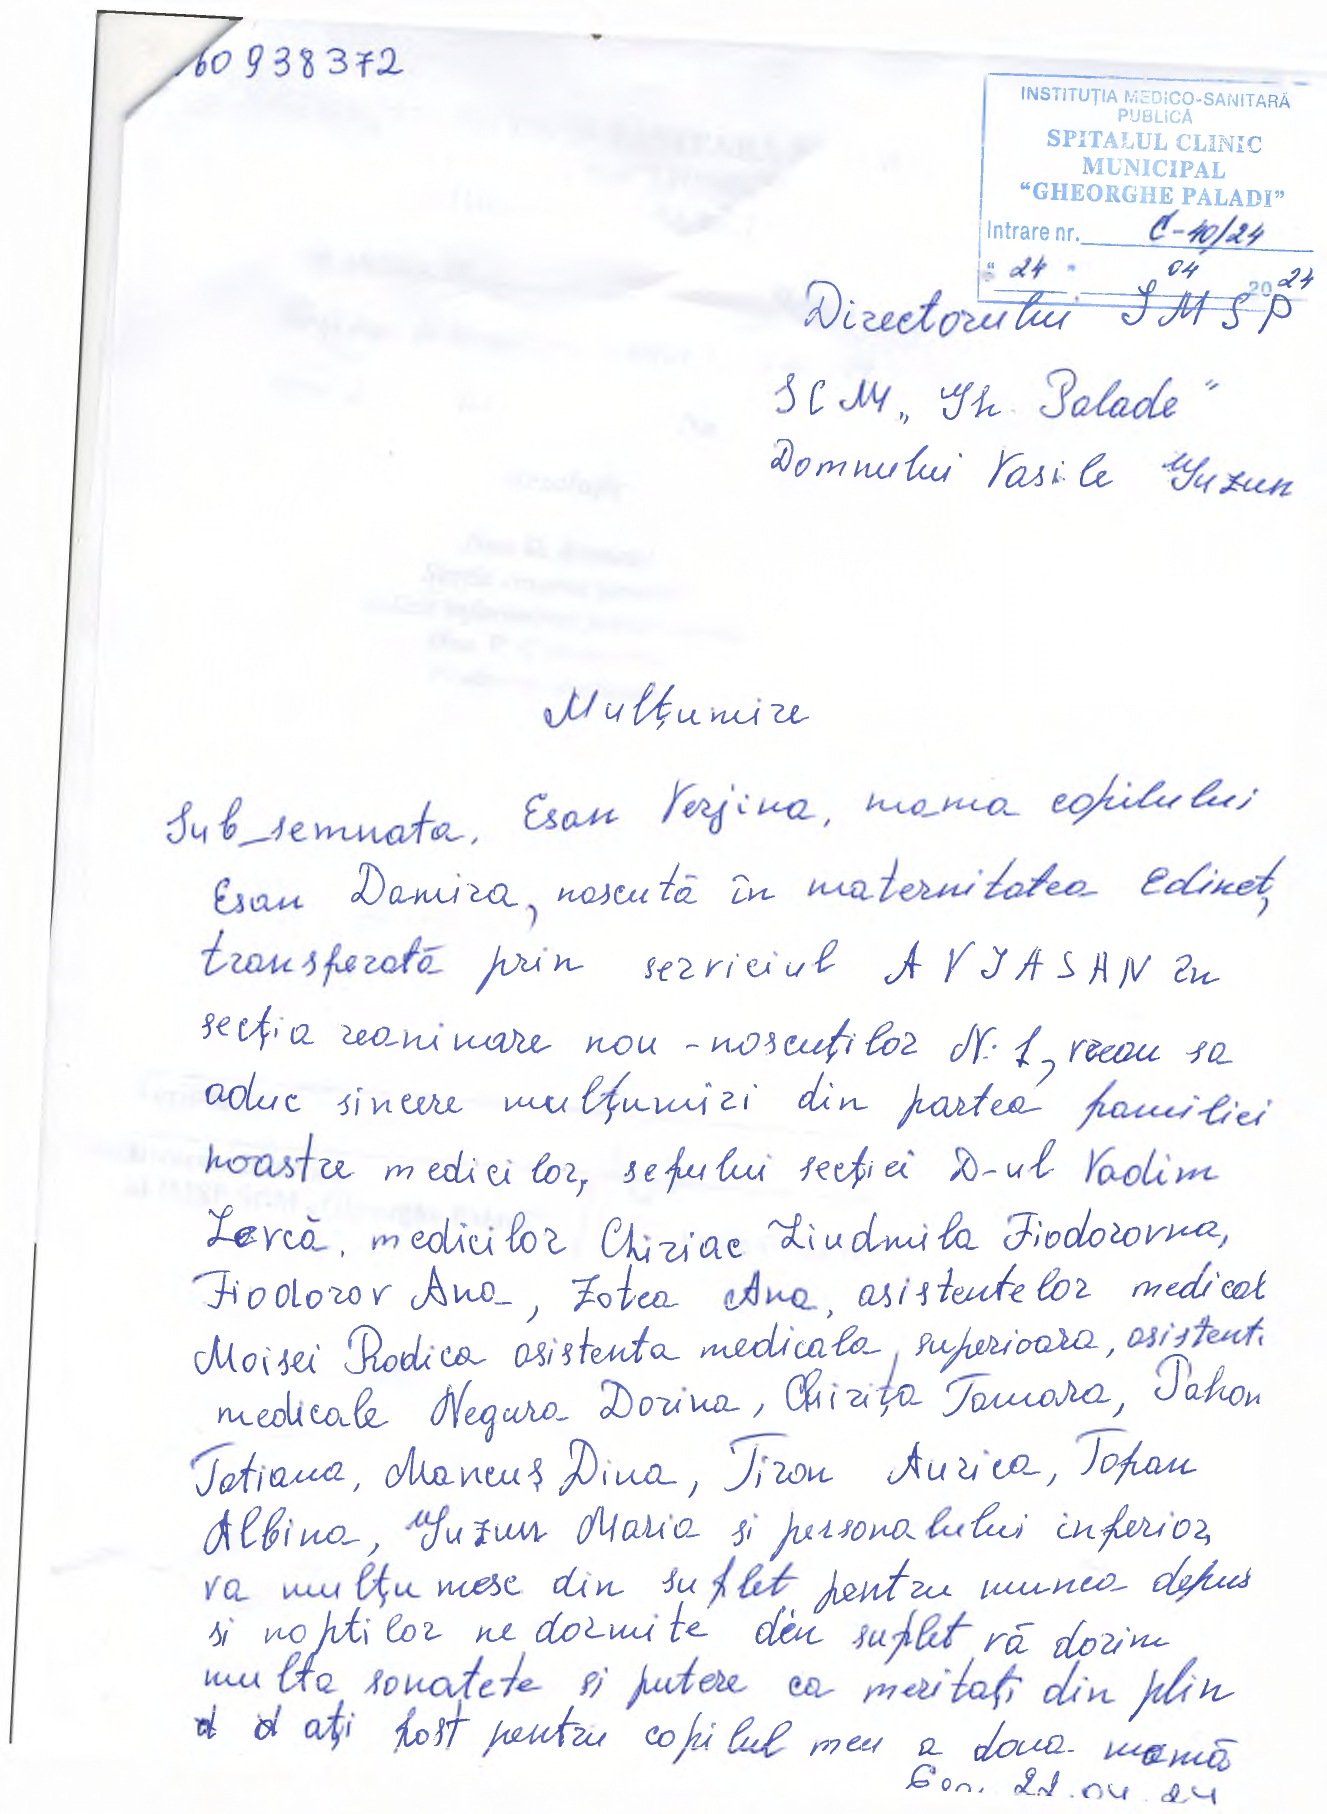 60938372
INSTITUȚIA MEDICO-SANITARĂ
PUBLICĂ
SPITALUL CLINIC
MUNICIPAL
“GHEORGHE PALADI”
Intrare nr. C-40/24
“ 24 ” 04 2024
Directorului IMSP
SCM „Gh. Palade”
Domnului Vasile Guzun
Mulțumire
Sub_semnata, Esan Verjina, mama copilului
Esan Damira, noscută în maternitatea Edineț,
transferată prin serviciul AVIASAN în
secția reanimare nou-noscuților N: 1, vreau sa
aduc sincere mulțumiri din partea familiei
noastre medicilor, sefului secției D-ul Vadim
medicilor Chiriac Liudmila Fiodorovna,
Fiodorov Ana, Zotea Ana, asistentelor medical
Moisei Rodica asistenta medicala, superioara, asistent
medicale Negura Dorina, Chirița Tamara, Pahon
Tatiana, Mancuș Dina, Tiron Aurica, Topan
Albina, Guzun Maria si personalului inferior,
va mulțumesc din suflet pentru munca depus
si noptilor nedormite din suflet vă dorim
multa sonatete si putere ca meritați din plin
ați fost pentru copilul meu a doua mamă
22.04.24